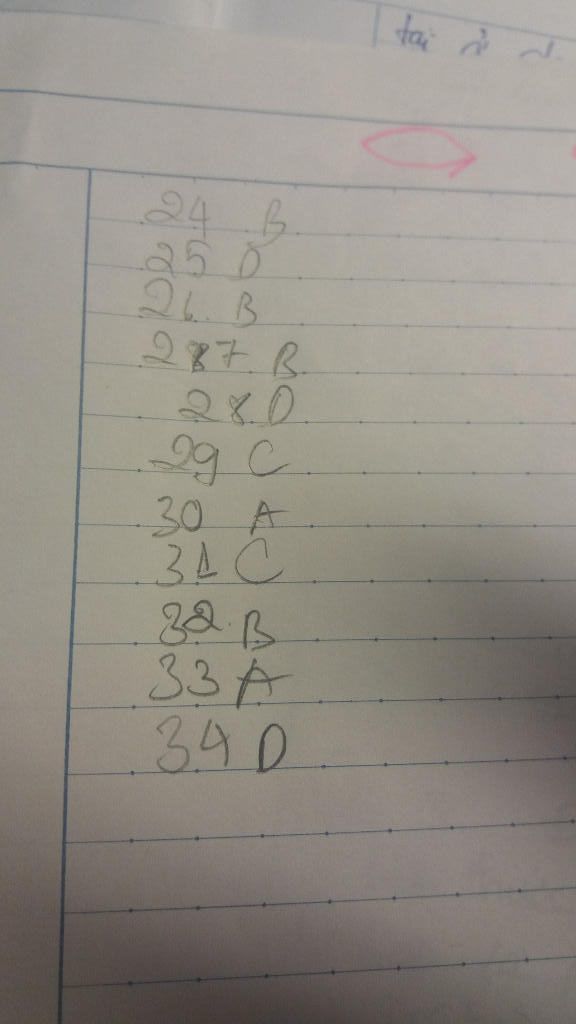 24 B
25 D
26. B
27 B
28 D
29 C
30 A
31 C
32. B
33 A
34 D